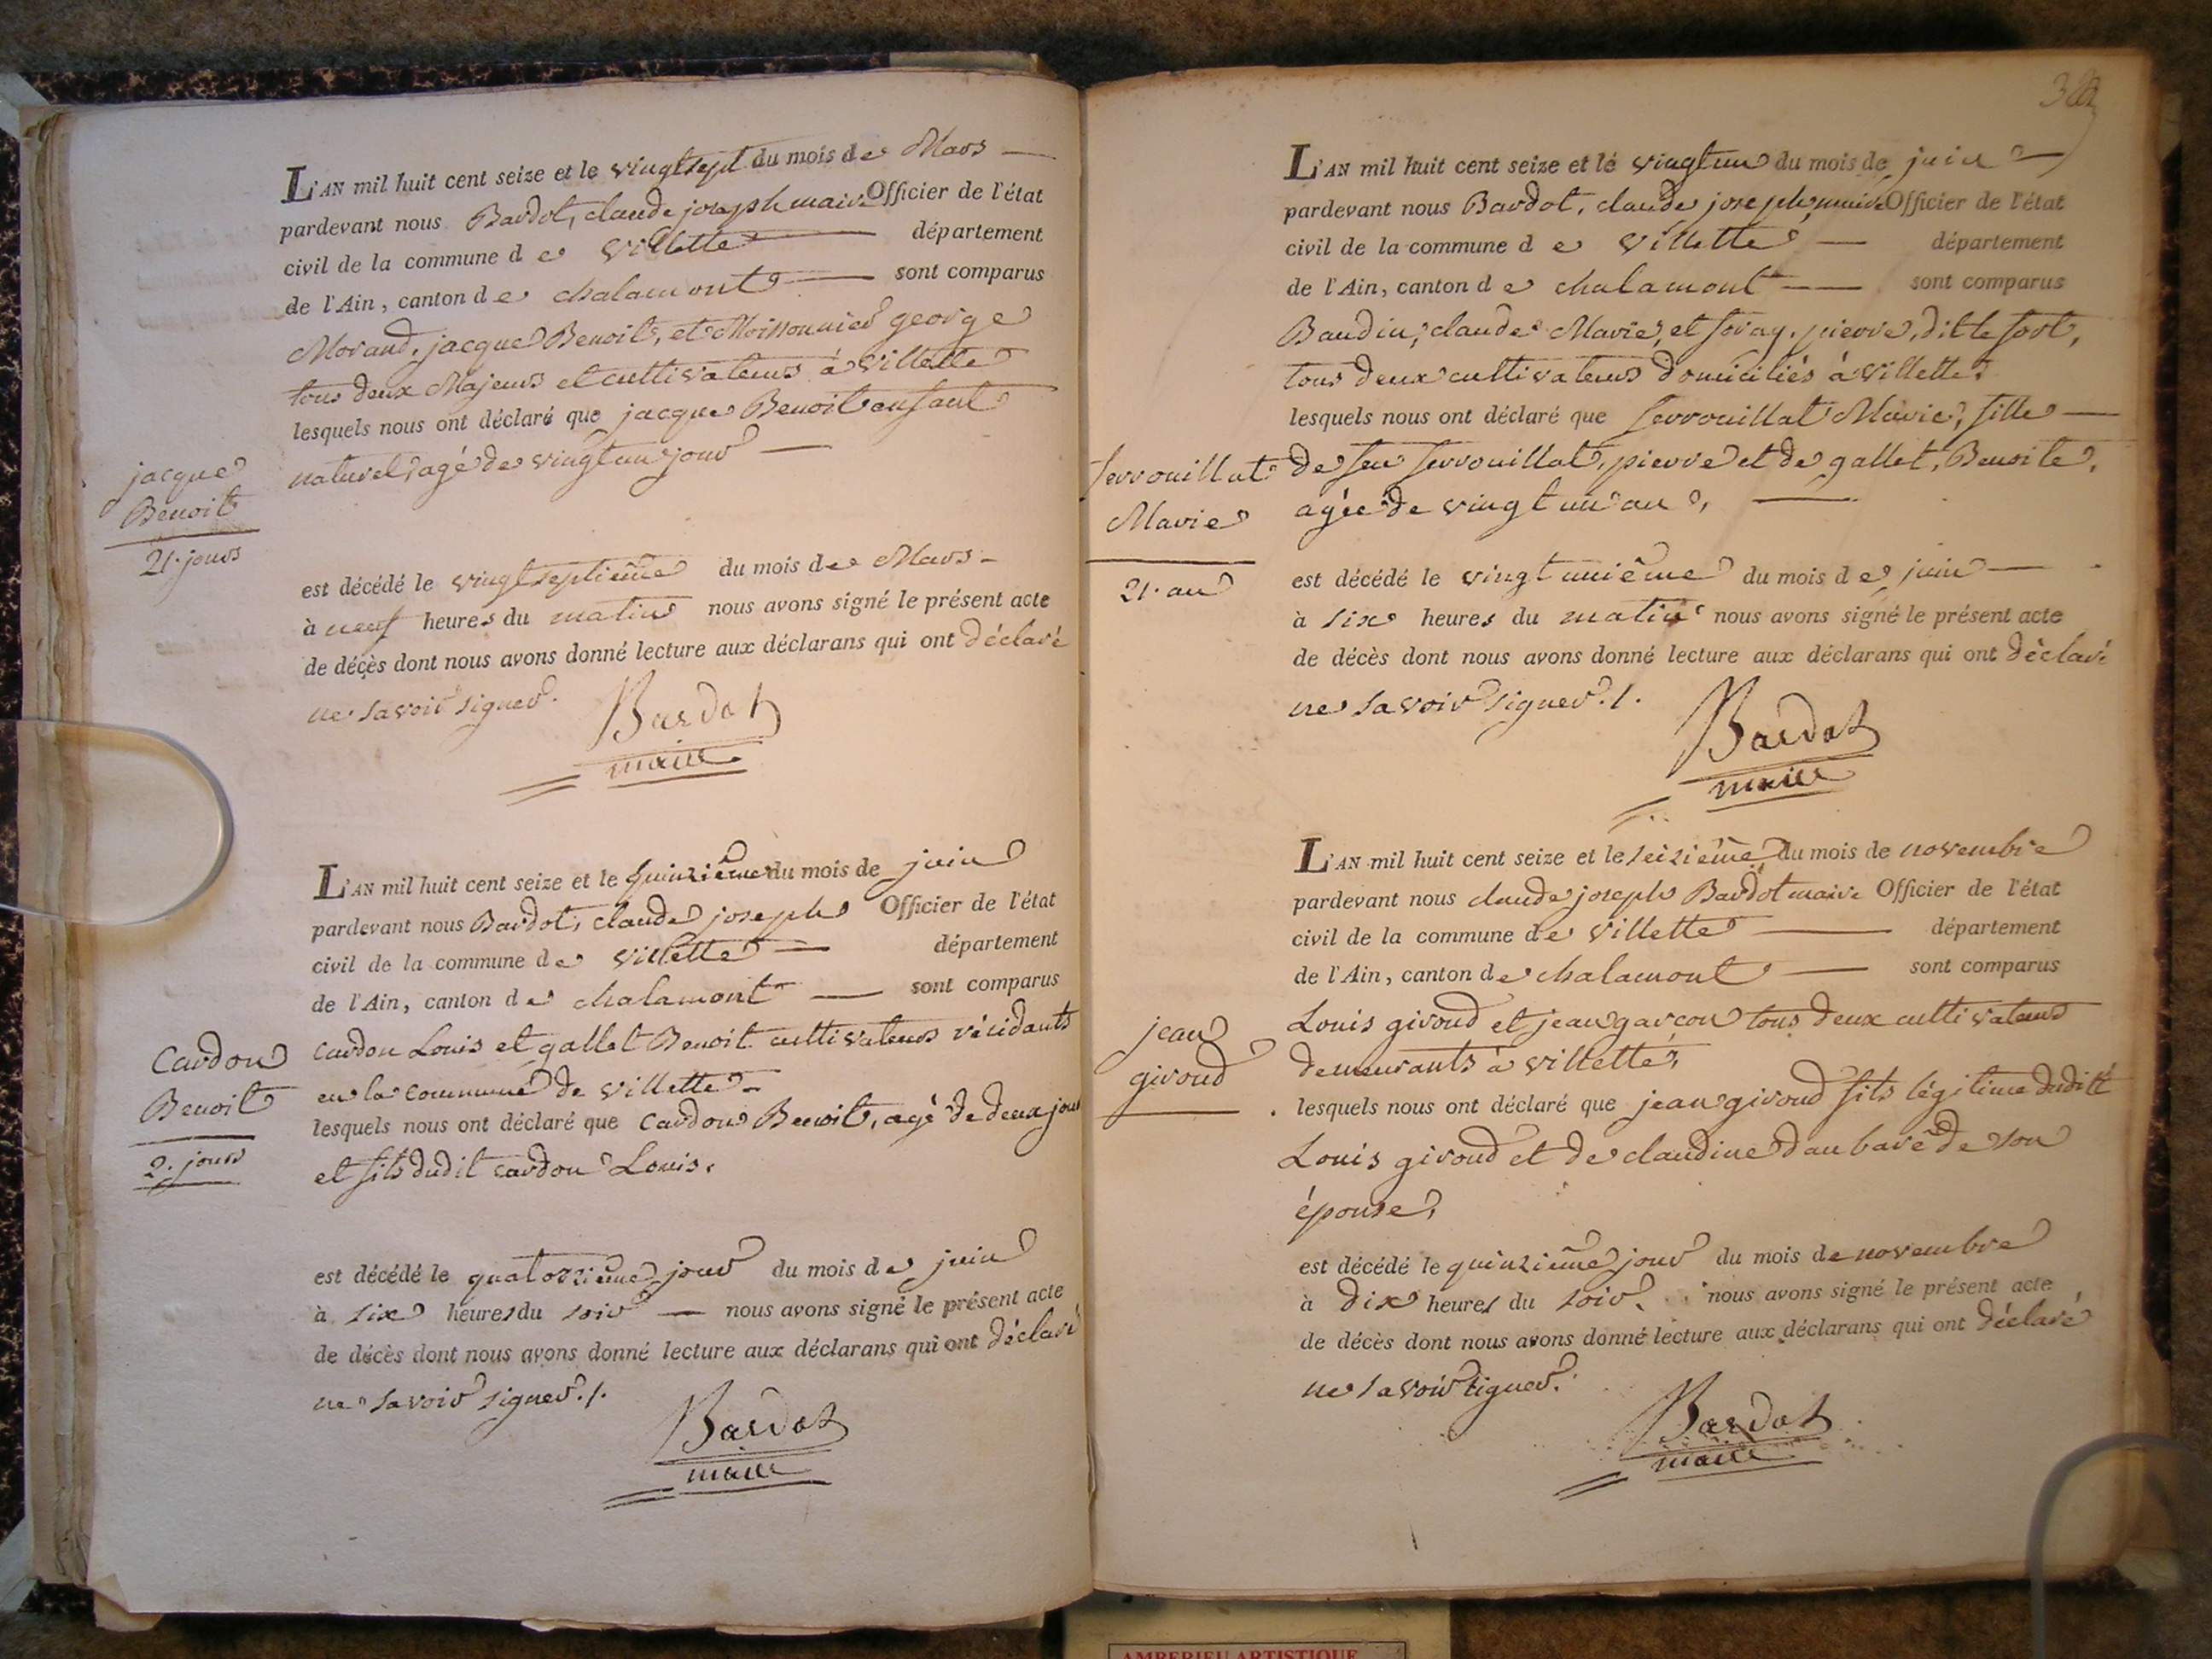 L'AN mil huit cent seize et le vingt sept du mois de Mars
pardevant nous Bardot, claude joseph maire Officier de l'état
civil de la commune de villette département
de l'Ain, canton de chalamont sont comparus
Morand, jacque Benoit, et Moissonnier george
tous deux Majeurs et cultivateurs à villette
lesquels nous ont déclaré que jacque Benoit enfant
naturel, agé de vingt un jour
jacque
Benoit
21. jours
est décédé le vingt septième du mois de Mars
à neuf heures du matin nous avons signé le présent acte
de décès dont nous avons donné lecture aux déclarans qui ont déclaré
ne savoir signer.
Bardot
maire
L'AN mil huit cent seize et le quinzième du mois de juin
pardevant nous Bardot, claude joseph Officier de l'état
civil de la commune de villette département
de l'Ain, canton de chalamont sont comparus
cardon Louis et gallet Benoit cultivateurs résidants
en la commune de villette
lesquels nous ont déclaré que Cardon Benoit, agé de deux jour
et fils dudit cardon Louis.
Cardon
Benoit
2. jours
est décédé le quatorzième jour du mois de juin
à six heures du soir nous avons signé le présent acte
de décès dont nous avons donné lecture aux déclarans qui ont déclaré
ne savoir signer./.
Bardot
maire
L'AN mil huit cent seize et le vingt un du mois de juin
pardevant nous Bardot, claude joseph, maire Officier de l'état
civil de la commune de villette département
de l'Ain, canton de chalamont sont comparus
Baudin, claude Marie, et foray, pierre, dit le fort,
tous deux cultivateurs domiciliés à villette.
lesquels nous ont déclaré que ferrouillat Marie, fille
de feu ferrouillat, pierre et de gallet, Benoite,
agée de vingt un an,
ferrouillat
Marie
21. an
est décédé le vingt unième du mois de juin
à six heures du matin nous avons signé le présent acte
de décès dont nous avons donné lecture aux déclarans qui ont déclaré
ne savoir signer./.
Bardot
maire
L'AN mil huit cent seize et le seizième du mois de novembre
pardevant nous claude joseph Bardot maire Officier de l'état
civil de la commune de villette département
de l'Ain, canton de chalamont sont comparus
Louis giroud et jean garcon tous deux cultivateurs
demeurants à villette,
lesquels nous ont déclaré que jean giroud fils légitime dudit
Louis giroud et de claudine daubarède son
épouse,
jean
giroud
est décédé le quinzième jour du mois de novembre
à dix heures du soir. nous avons signé le présent acte
de décès dont nous avons donné lecture aux déclarans qui ont déclaré
ne savoir signer.
Bardot
maire
AMBERIEU ARTISTIQUE